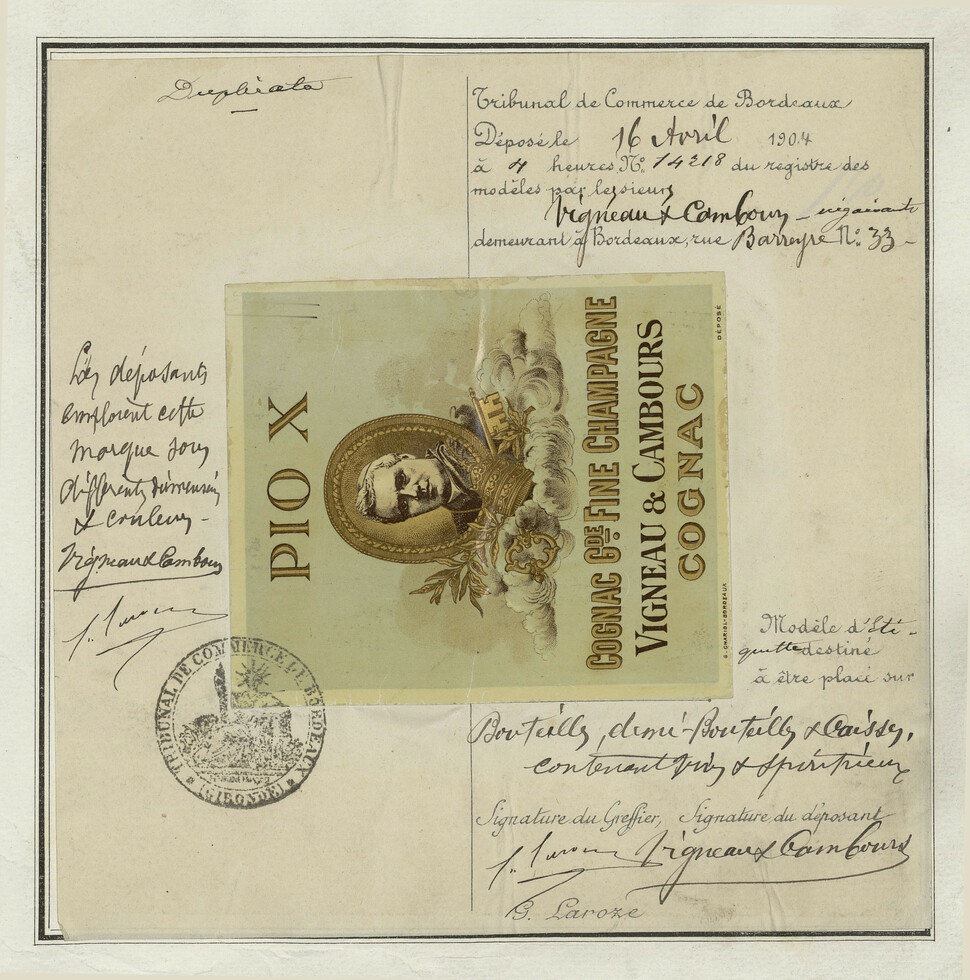 Duplicata
Tribunal de Commerce de Bordeaux
Déposé le 16 Avril 1904
à 4 heures No. 14218 du registre des
modèles par le sieurs
Vigneau & Cambours négociants
demeurant à Bordeaux, rue Barreyre No. 33
Les déposants
emploient cette
marque sous
différentes dimensions
& couleurs
Vigneau & Cambours
PIO X
COGNAC GDE FINE CHAMPAGNE
VIGNEAU & CAMBOURS
COGNAC
DÉPOSÉ
G. CHARIOL-BORDEAUX
TRIBUNAL DE COMMERCE DE BORDEAUX
(GIRONDE)
Modèle d'Eti-
quette destiné
à être placé sur
Bouteilles, demi-Bouteilles & Caisses,
contenant Vins & Spiritueux
Signature du Greffier, Signature du déposant
Vigneau & Cambours
G. Laroze